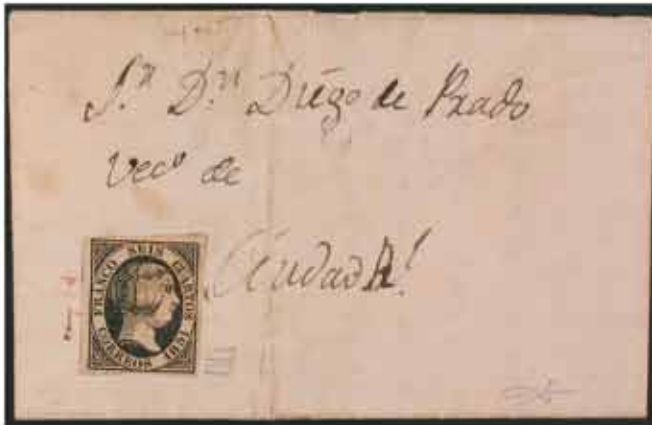 Sr. Dn. Diego de Prado
Veco de
Ciudad Rl
FRANCO SEIS CUARTOS
CORREOS 1851